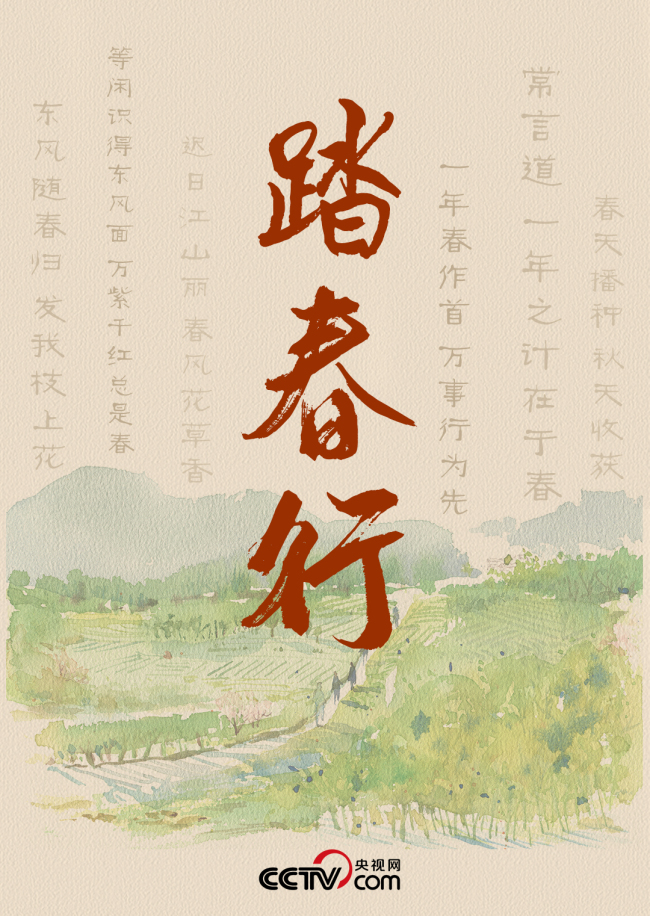 踏春行
东风随春归 发我枝上花
等闲识得东风面 万紫千红总是春
迟日江山丽 春风花草香
一年春作首 万事行为先
常言道 一年之计在于春
春天播种 秋天收获
CCTV 央视网
com